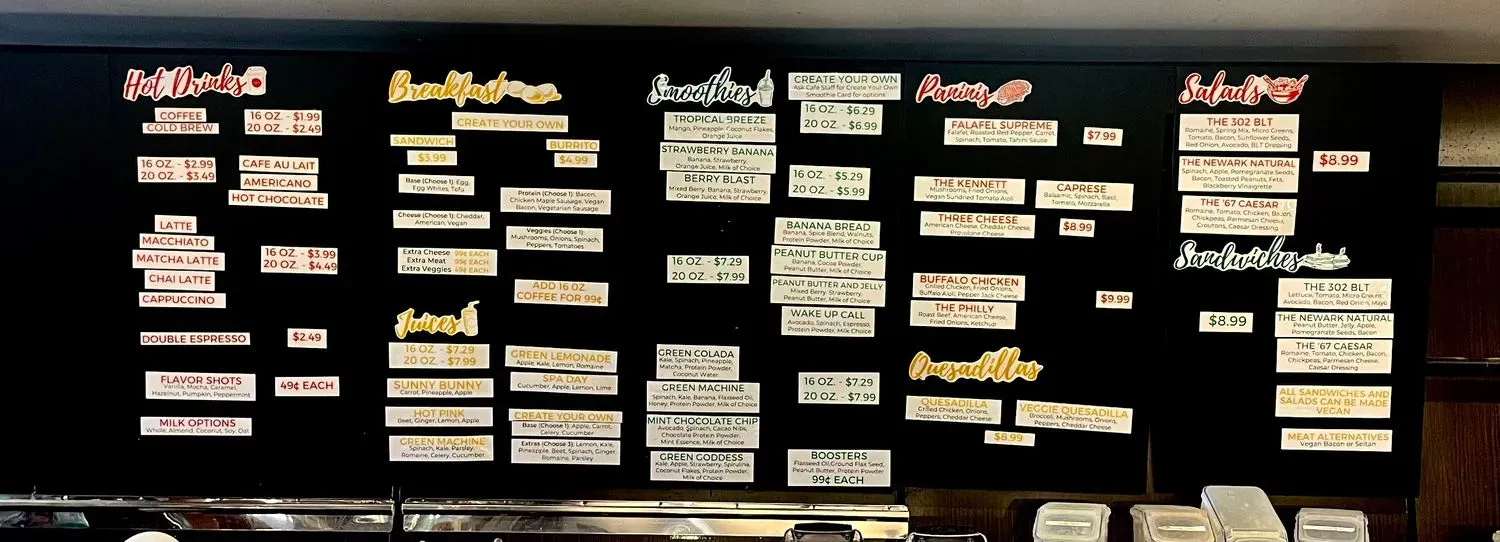 Hot Drinks
COFFEE
COLD BREW
16 OZ. - $1.99
20 OZ. - $2.49
16 OZ. - $2.99
20 OZ. - $3.49
CAFE AU LAIT
AMERICANO
HOT CHOCOLATE
LATTE
MACCHIATO
MATCHA LATTE
CHAI LATTE
CAPPUCCINO
16 OZ. - $3.99
20 OZ. - $4.49
DOUBLE ESPRESSO
$2.49
FLAVOR SHOTS
Vanilla, Mocha, Caramel,
Hazelnut, Pumpkin, Peppermint
49¢ EACH
MILK OPTIONS
Whole, Almond, Coconut, Soy, Oat
Breakfast
CREATE YOUR OWN
SANDWICH
$3.99
BURRITO
$4.99
Base (Choose 1): Egg,
Egg Whites, Tofu
Protein (Choose 1): Bacon,
Chicken Maple Sausage, Vegan
Bacon, Vegetarian Sausage
Cheese (Choose 1): Cheddar,
American, Vegan
Veggies (Choose 1):
Mushrooms, Onions, Spinach,
Peppers, Tomatoes
Extra Cheese 99¢ EACH
Extra Meat 99¢ EACH
Extra Veggies 49¢ EACH
ADD 16 OZ.
COFFEE FOR 99¢
Juices
16 OZ. - $7.29
20 OZ. - $7.99
SUNNY BUNNY
Carrot, Pineapple, Apple
HOT PINK
Beet, Ginger, Lemon, Apple
GREEN MACHINE
Spinach, Kale, Parsley
Romaine, Celery, Cucumber
GREEN LEMONADE
Apple, Kale, Lemon, Romaine
SPA DAY
Cucumber, Apple, Lemon, Lime
CREATE YOUR OWN
Base (Choose 1): Apple, Carrot,
Celery, Cucumber
Extras (Choose 3): Lemon, Kale,
Pineapple, Beet, Spinach, Ginger,
Romaine, Parsley
Smoothies
CREATE YOUR OWN
Ask Cafe Staff for Create Your Own
Smoothie Card for options
16 OZ. - $6.29
20 OZ. - $6.99
TROPICAL BREEZE
Mango, Pineapple, Coconut Flakes,
Orange Juice
STRAWBERRY BANANA
Banana, Strawberry,
Orange Juice, Milk of Choice
BERRY BLAST
Mixed Berry, Banana, Strawberry,
Orange Juice, Milk of Choice
16 OZ. - $5.29
20 OZ. - $5.99
BANANA BREAD
Banana, Spice Blend, Walnuts,
Protein Powder, Milk of Choice
PEANUT BUTTER CUP
Banana, Cocoa Powder,
Peanut Butter, Milk of Choice
PEANUT BUTTER AND JELLY
Mixed Berry, Strawberry,
Peanut Butter, Milk of Choice
WAKE UP CALL
Avocado, Spinach, Espresso,
Protein Powder, Milk of Choice
16 OZ. - $7.29
20 OZ. - $7.99
GREEN COLADA
Kale, Spinach, Pineapple,
Matcha, Protein Powder,
Coconut Water
GREEN MACHINE
Spinach, Kale, Banana, Flaxseed Oil,
Honey, Protein Powder, Milk of Choice
MINT CHOCOLATE CHIP
Avocado, Spinach, Cacao Nibs,
Chocolate Protein Powder,
Mint Essence, Milk of Choice
GREEN GODDESS
Kale, Apple, Strawberry, Spirulina,
Coconut Flakes, Protein Powder,
Milk of Choice
16 OZ. - $7.29
20 OZ. - $7.99
BOOSTERS
Flaxseed Oil, Ground Flax Seed,
Peanut Butter, Protein Powder
99¢ EACH
Paninis
FALAFEL SUPREME
Falafel, Roasted Red Pepper, Carrot,
Spinach, Tomato, Tahini Sauce
$7.99
THE KENNETT
Mushrooms, Fried Onions,
Vegan Sundried Tomato Aioli
CAPRESE
Balsamic, Spinach, Basil,
Tomato, Mozzarella
THREE CHEESE
American Cheese, Cheddar Cheese,
Provolone Cheese
$8.99
BUFFALO CHICKEN
Grilled Chicken, Fried Onions,
Buffalo Aioli, Pepper Jack Cheese
THE PHILLY
Roast Beef, American Cheese,
Fried Onions, Ketchup
$9.99
Quesadillas
QUESADILLA
Grilled Chicken, Onions,
Peppers, Cheddar Cheese
VEGGIE QUESADILLA
Broccoli, Mushrooms, Onions,
Peppers, Cheddar Cheese
$8.99
Salads
THE 302 BLT
Romaine, Spring Mix, Micro Greens,
Tomato, Bacon, Sunflower Seeds,
Red Onion, Avocado, BLT Dressing
THE NEWARK NATURAL
Spinach, Apple, Pomegranate Seeds,
Bacon, Toasted Peanuts, Feta,
Blackberry Vinaigrette
THE '67 CAESAR
Romaine, Tomato, Chicken, Bacon,
Chickpeas, Parmesan Cheese,
Croutons, Caesar Dressing
$8.99
Sandwiches
THE 302 BLT
Lettuce, Tomato, Micro Greens,
Avocado, Bacon, Red Onion, Mayo
THE NEWARK NATURAL
Peanut Butter, Jelly, Apple,
Pomegranate Seeds, Bacon
THE '67 CAESAR
Romaine, Tomato, Chicken, Bacon,
Chickpeas, Parmesan Cheese,
Caesar Dressing
$8.99
ALL SANDWICHES AND
SALADS CAN BE MADE
VEGAN
MEAT ALTERNATIVES
Vegan Bacon or Seitan